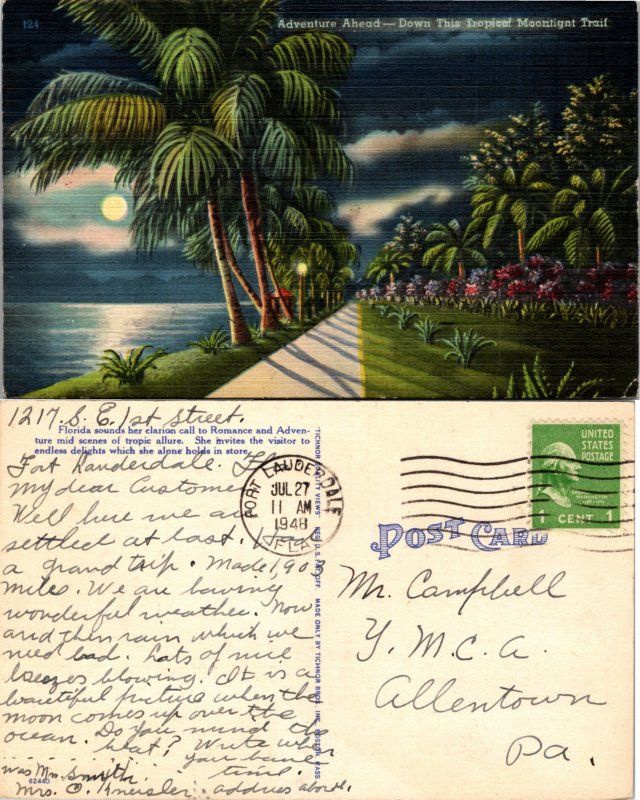 124
Adventure Ahead—Down This Tropical Moonlight Trail
1217. S. E. 1st Street.
Florida sounds her clarion call to Romance and Adven-
ture mid scenes of tropic allure. She invites the visitor to
endless delights which she alone holds in store.
Fort Lauderdale. Fla
My dear Customer
Well here we are
settled at last. Had
a grand trip. Made 1,903
miles. We are having
wonderful weather. Now
and then rain which we
need bad. Lots of nice
breezes blowing. It is a
beautiful picture when the
moon comes up over the
ocean. Do you mind the
heat? Write when
you have
time.
was Mrs. Smith.
Mrs. O. Kneisler. address above.
62440
TICHNOR QUALITY VIEWS REG. U.S. PAT. OFF. MADE ONLY BY TICHNOR BROS. INC. BOSTON, MASS.
FORT LAUDERDALE
JUL 27
11 AM
1948
FLA.
UNITED
STATES
POSTAGE
WASHINGTON
1 CENT 1
POST CARD
Mr. Campbell
Y. M. C. A.
Allentown
Pa.